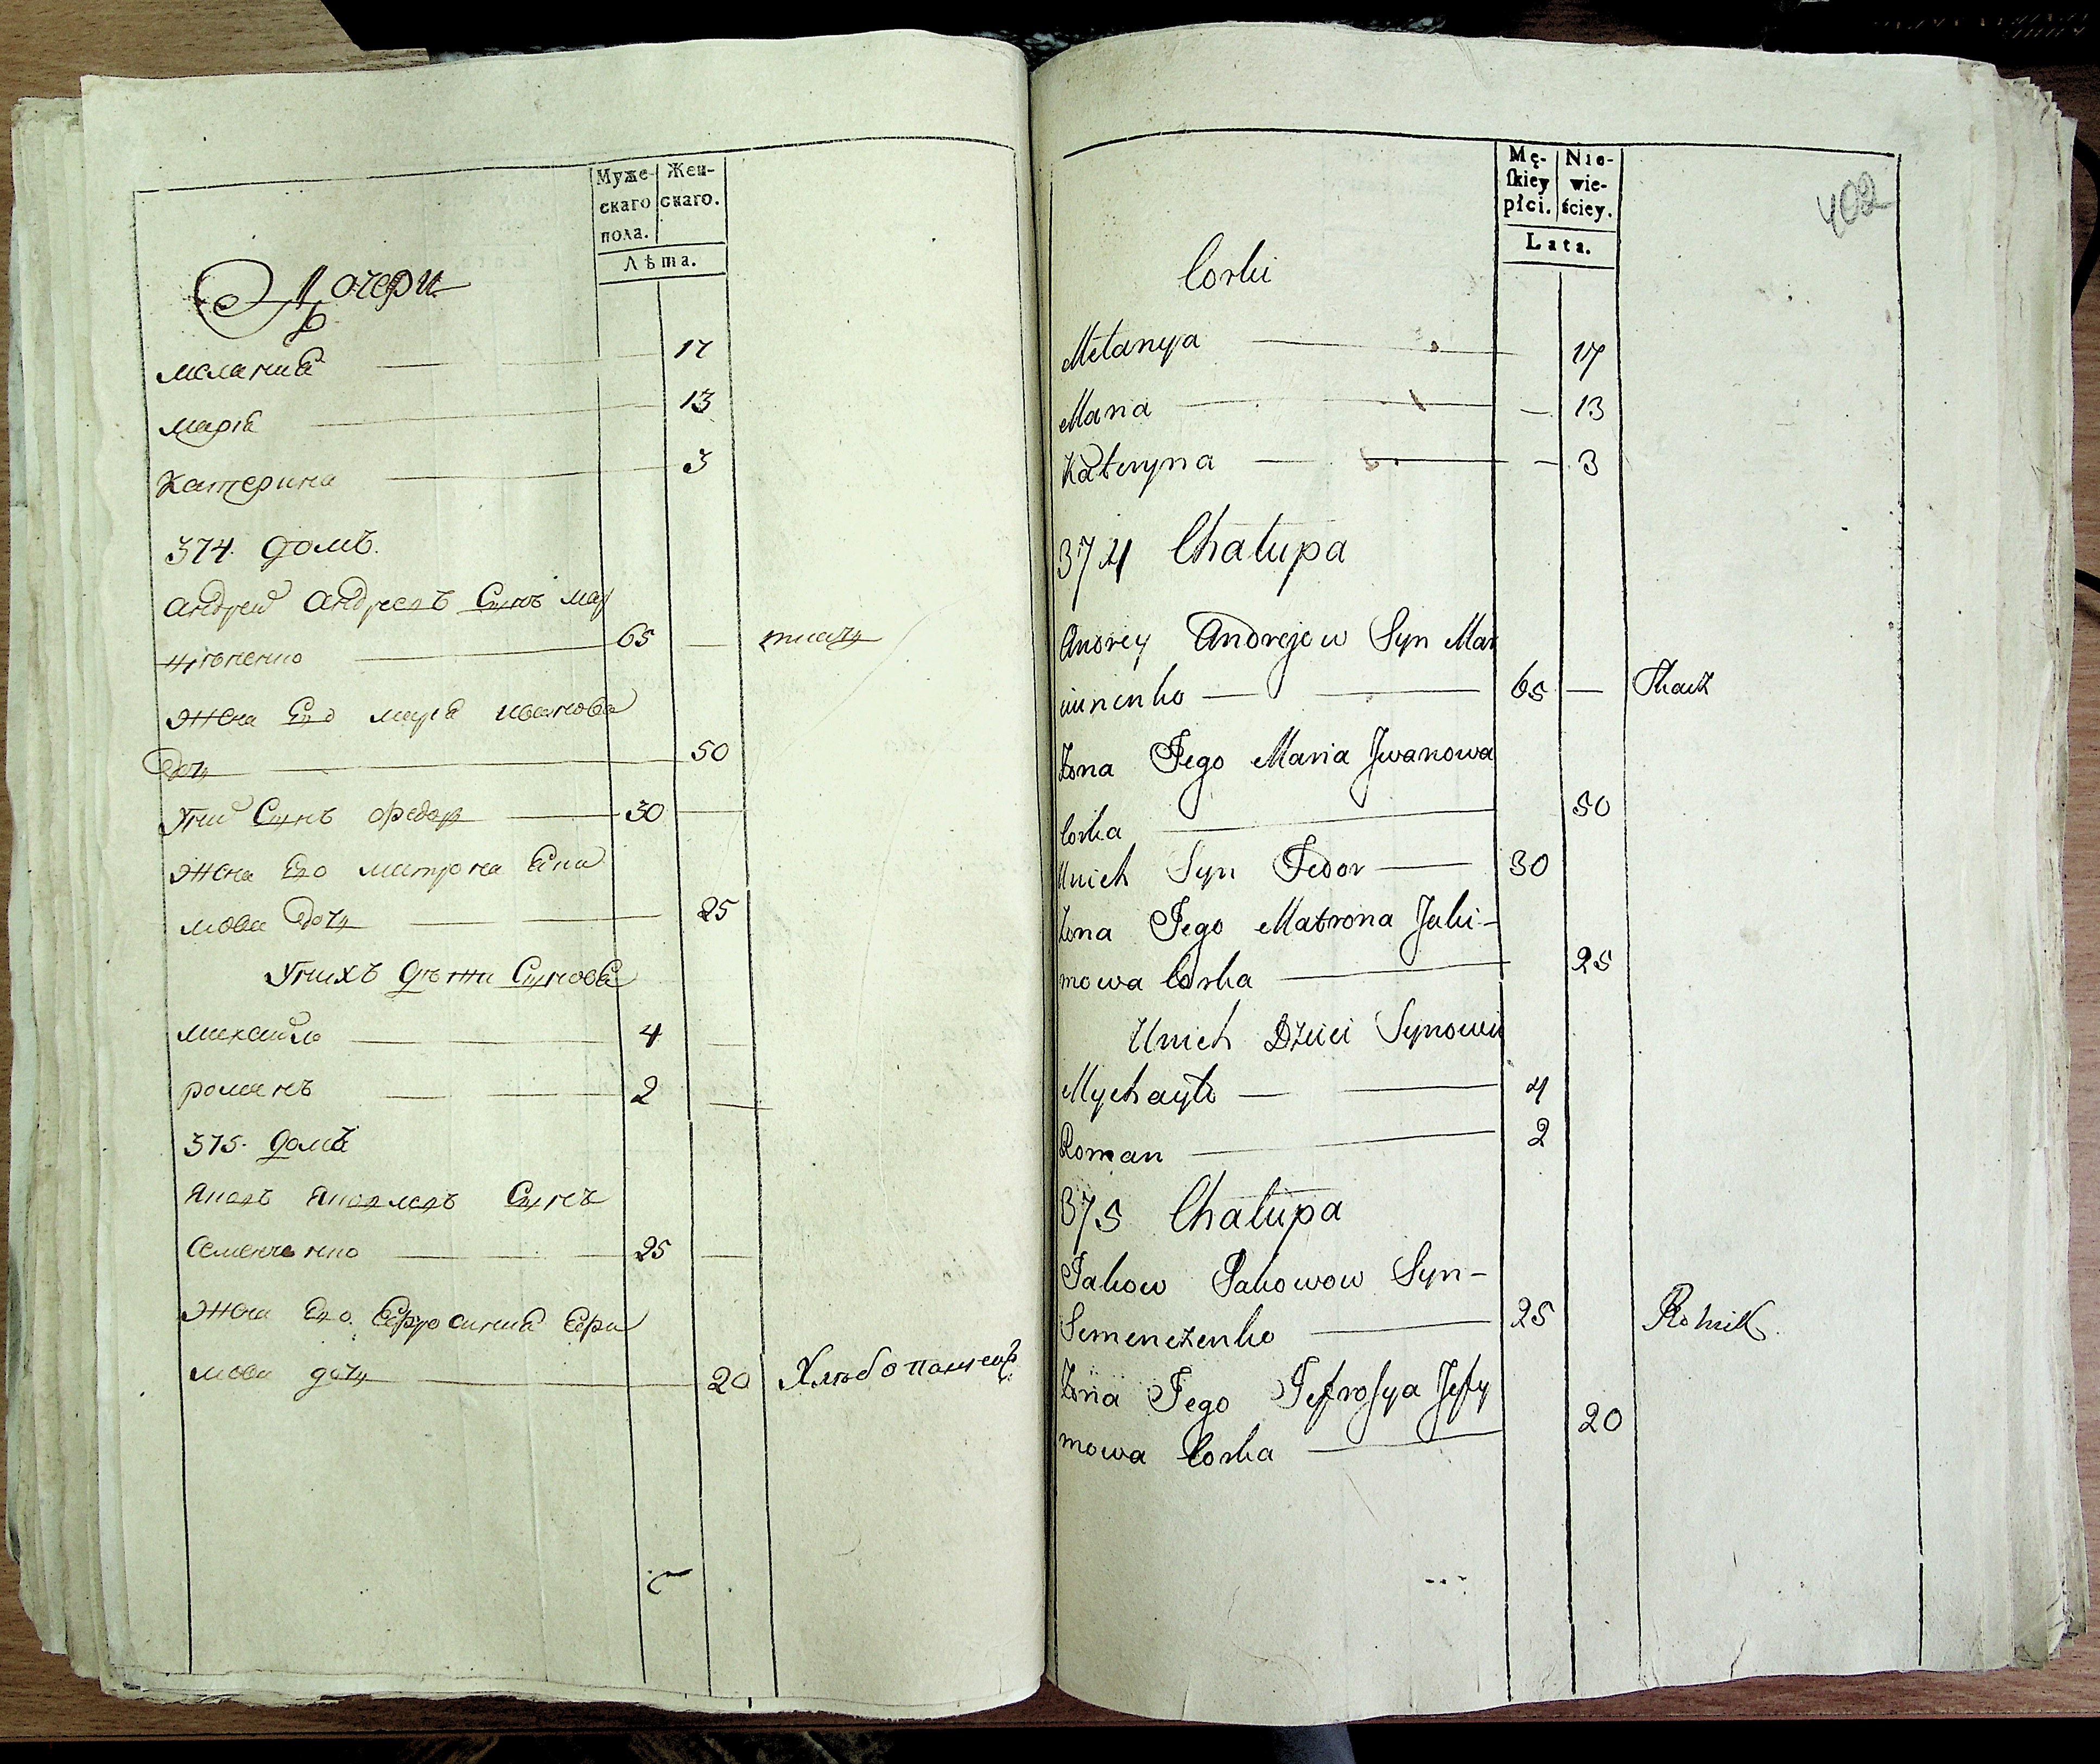 Муже-
скаго
пола.
Жен-
скаго.
Лѣта.
Дочери
меланиа 17
мариа 13
катерина 3
374. домъ.
андрей андреевъ Сынъ мар
65 ткачъ
жена Его мариа иванова
дочь 50
Унихъ Сынъ Федор 30
жена Его матрона Еки
мова дочь 25
Унихъ дѣти Сынова
михайло 4
романъ 2
375. домъ
яковъ яковлевъ Сынъ
Семенченко 25
жена Его Ефросиния Ефи
мова дочь 20 Хлѣбопашецъ
402
Mę-
skiey
płci.
Nie-
wie-
ściey.
Lata.
Corki
Mełanya 17
Maria 13
Kateryna 3
374 Chałupa
Andrey Andrejow Syn Mar
65 Tkacz
Żona Jego Maria Jwanowa
Corka 50
Unich Syn Fedor 30
Żona Jego Matrona Jaki-
mowa Corka 25
Unich Dzieci Synowie
Mychayło 4
Roman 2
375 Chałupa
Jakow Jakowow Syn-
Semenczenko 25 Rolnik.
Żona Jego Jefrosya Jefy
mowa Corka 20